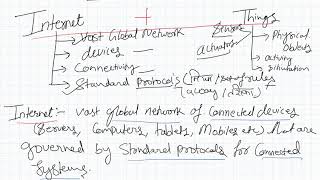 Internet + Things
Vast Global Network
devices
Connectivity
Standard Protocols
Sensors
actuators
Physical Objects
activity
Stimulation
(नियम/set of rules
Internet:- vast global network of Connected devices
(Servers, Computers, tablets, Mobiles etc) that are
governed by Standard protocols for Connected
Systems.